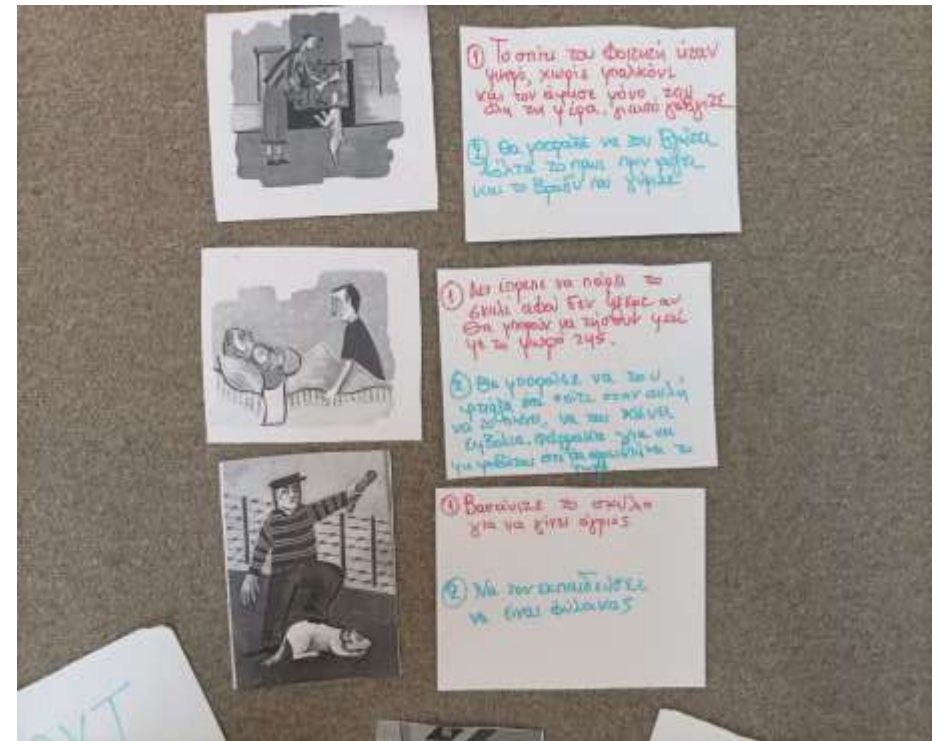 ① Το σπίτι του φοιτητή ήταν
μικρό, χωρίς μπαλκόνι
και τον άφησε μόνο του
όλη τη μέρα, γιαυτό γάβγιζε
② Θα μπορούσε να τον βγάζει
βόλτα το πρωί πριν φύγει
και το βράδυ που γύριζε
① Δεν έπρεπε να πάρει το
σκύλο αφού δεν ήξερε αν
θα μπορούν να ζήσουν μαζί
με το μωρό της.
② Θα μπορούσε να του
φτιάξει ένα σπίτι στην αυλή
να το πλένει, να του κάνει
εμβόλια, για να
μη φοβάται ότι θα το
① Βασάνιζε το σκύλο
για να γίνει άγριος
② Να τον εκπαιδεύσει
να είναι φύλακας